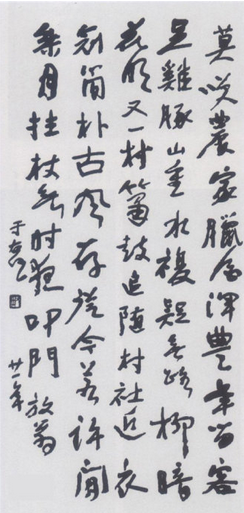 莫咲農家臘酒渾豐年留客
足雞豚山重水複疑無路柳暗
花明又一村簫鼓追隨村社近衣
冠簡朴古風存從今若許閒
乘月拄杖無時夜叩門放翁
廿一年
于右任